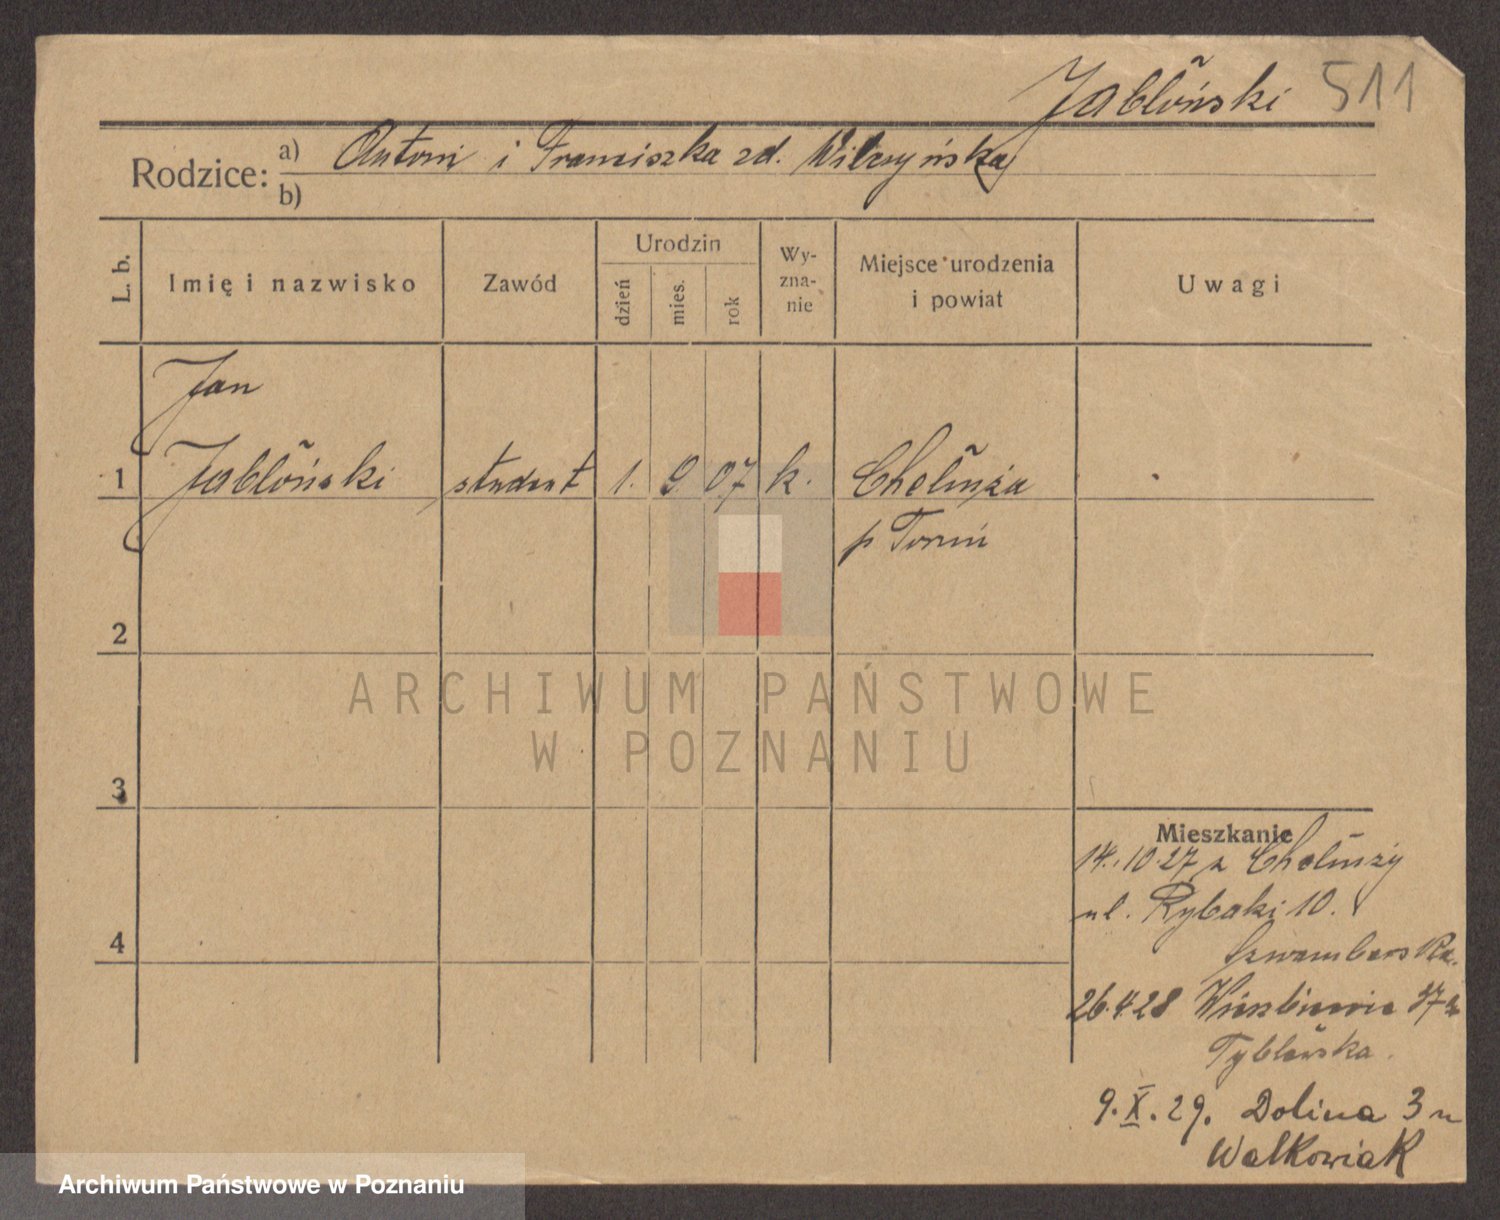 Jabłoński 511
Rodzice: a) Antoni i Franciszka zd. Wilczyńska
b)
L. b.
Imię i nazwisko
Zawód
Urodzin
dzień
mies.
rok
Wy-
zna-
nie
Miejsce urodzenia
i powiat
Uwagi
Jan
1 Jabłoński student 1. 9. 07 k. Chełmża
p Toruń
2
3
4
Mieszkanie
14.10.27 z Chełmży
ul. Rybaki 10.
26.4.28 37
9.X.29. Dolina 3 u
Walkowiak
ARCHIWUM PAŃSTWOWE
W POZNANIU
Archiwum Państwowe w Poznaniu